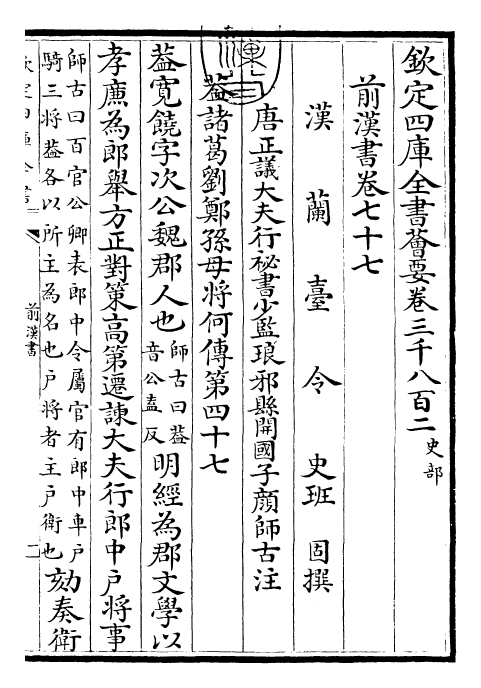 欽定四庫全書薈要卷三千八百二 史部
前漢書卷七十七
漢蘭臺令史班固撰
唐正議大夫行祕書少監琅邪縣開國子顏師古注
葢諸葛劉鄭孫毋將何傳第四十七
葢寛饒字次公魏郡人也師古曰葢音公盍反明經為郡文學以
孝亷為郎舉方正對策高第遷諫大夫行郎中戶將事
師古曰百官公卿表郎中令屬官有郎中車戶騎三將葢各以所主為名也戶將者主戶衛也劾奏衛
前漢書
二